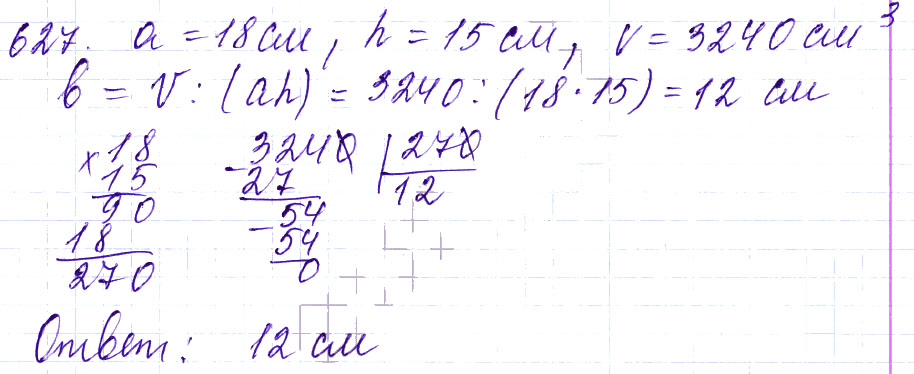 627. a = 18 см, h = 15 см, V = 3240 см³
b = V : (ah) = 3240 : (18 · 15) = 12 см
×18 -3240 | 270
15 27 12
90 -54
18 54
270 0
Ответ: 12 см